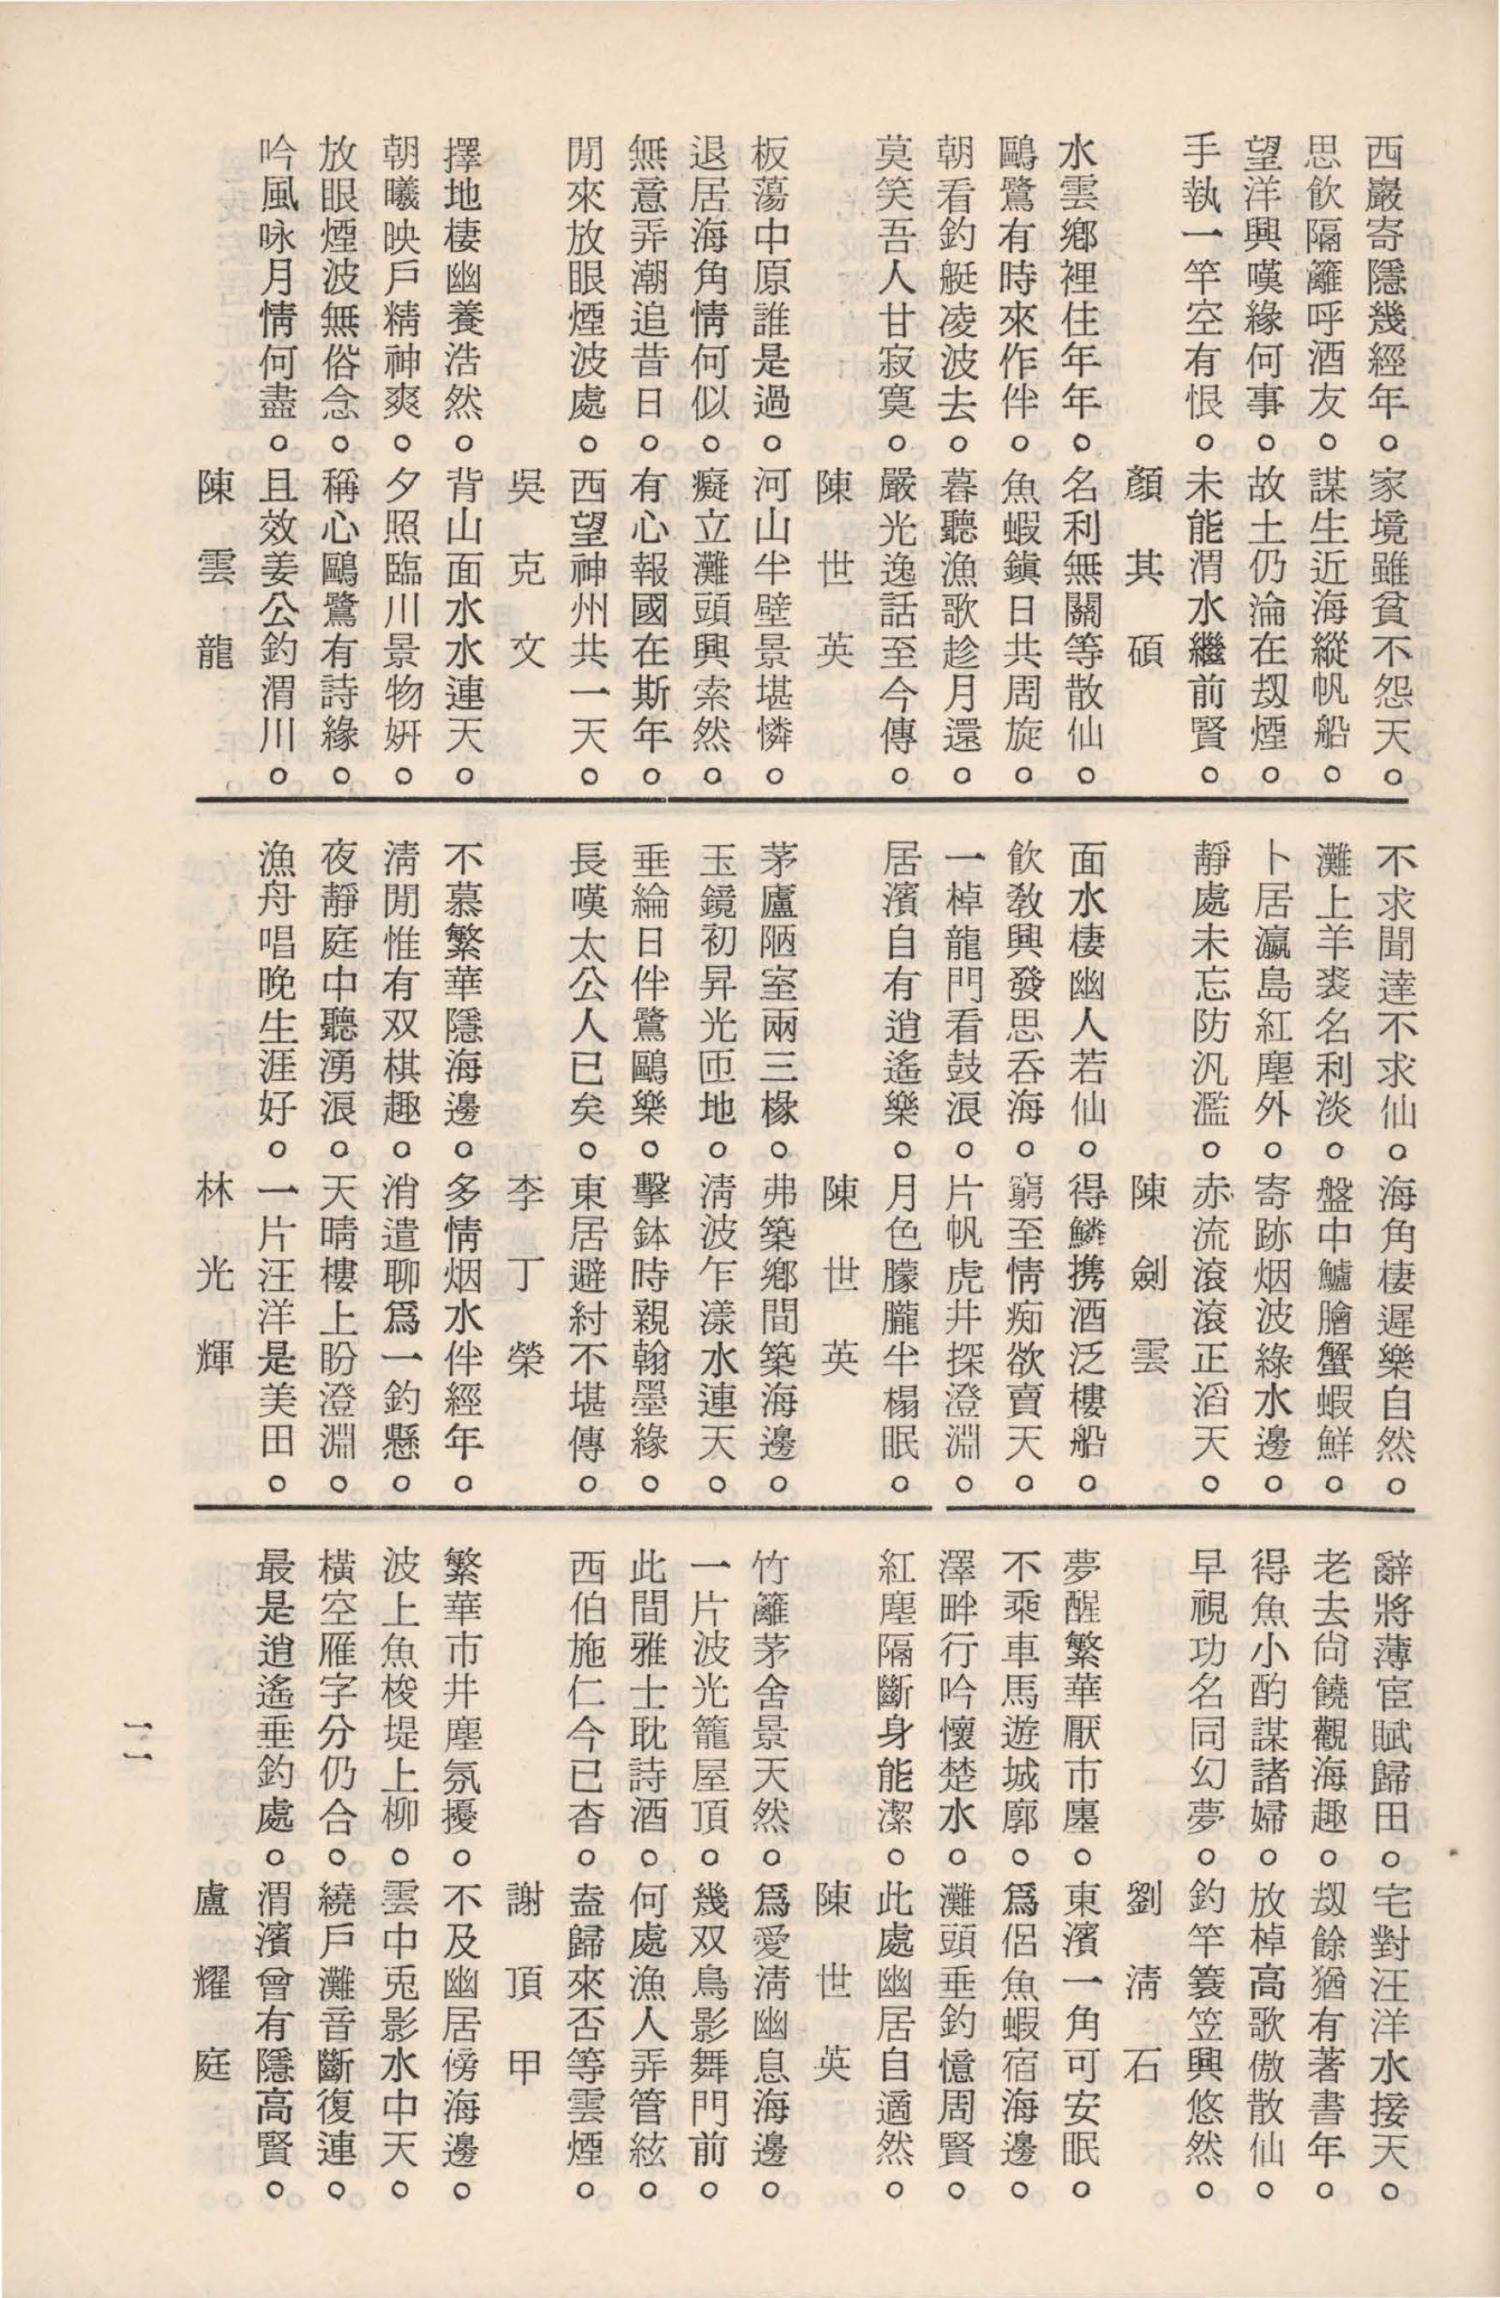 西巖寄隱幾經年。家境雖貧不怨天。
思飲隔籬呼酒友。謀生近海縱帆船。
望洋興嘆緣何事。故土仍淪在刼煙。
手執一竿空有恨。未能渭水繼前賢。
顏其碩
水雲鄉裡住年年。名利無關等散仙。
鷗鷺有時來作伴。魚蝦鎮日共周旋。
朝看釣艇凌波去。暮聽漁歌趁月還。
莫笑吾人甘寂寞。嚴光逸話至今傳。
陳世英
板蕩中原誰是過。河山半壁景堪憐。
退居海角情何似。癡立灘頭興索然。
無意弄潮追昔日。有心報國在斯年。
閒來放眼煙波處。西望神州共一天。
吳克文
擇地棲幽養浩然。背山面水水連天。
朝曦映戶精神爽。夕照臨川景物妍。
放眼煙波無俗念。稱心鷗鷺有詩緣。
吟風咏月情何盡。且效姜公釣渭川。
陳雲龍
不求聞達不求仙。海角棲遲樂自然。
灘上羊裘名利淡。盤中鱸膾蟹蝦鮮。
卜居瀛島紅塵外。寄跡烟波綠水邊。
靜處未忘防汎濫。赤流滾滾正滔天。
陳劍雲
面水棲幽人若仙。得鱗携酒泛樓船。
飲教興發思吞海。窮至情痴欲賣天。
一棹龍門看鼓浪。片帆虎井探澄淵。
居濱自有逍遙樂。月色朦朧半榻眠。
陳世英
茅廬陋室兩三椽。弗築鄉間築海邊。
玉鏡初昇光匝地。清波乍漾水連天。
垂綸日伴鷺鷗樂。擊鉢時親翰墨緣。
長嘆太公人已矣。東居避紂不堪傳。
李丁榮
不慕繁華隱海邊。多情烟水伴經年。
清閒惟有双棋趣。消遣聊爲一釣懸。
夜靜庭中聽湧浪。天晴樓上盼澄淵。
漁舟唱晚生涯好。一片汪洋是美田。
林光輝
辭將薄宦賦歸田。宅對汪洋水接天。
老去尙饒觀海趣。刼餘猶有著書年。
得魚小酌謀諸婦。放棹高歌傲散仙。
早視功名同幻夢。釣竿簑笠興悠然。
劉淸石
夢醒繁華厭市廛。東濱一角可安眠。
不乘車馬遊城廓。爲侶魚蝦宿海邊。
澤畔行吟懷楚水。灘頭垂釣憶周賢。
紅塵隔斷身能潔。此處幽居自適然。
陳世英
竹籬茅舍景天然。爲愛淸幽息海邊。
一片波光籠屋頂。幾双鳥影舞門前。
此間雅士耽詩酒。何處漁人弄管絃。
西伯施仁今已杳。盍歸來否等雲煙。
謝頂甲
繁華市井塵氛擾。不及幽居傍海邊。
波上魚梭堤上柳。雲中兎影水中天。
橫空雁字分仍合。繞戶灘音斷復連。
最是逍遙垂釣處。渭濱曾有隱高賢。
盧耀庭
一一